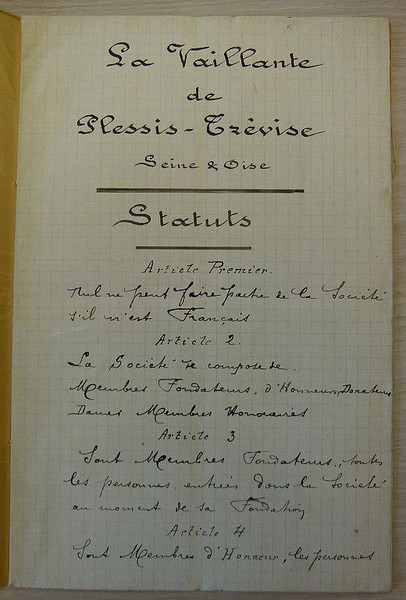 La Vaillante
de
Plessis-Trévise
Seine & Oise
Statuts
Article Premier.
Nul ne peut faire partie de la Société
s'il n'est Français
Article 2.
La Société se compose de.
Membres Fondateurs, d'Honneur, Donateurs
Dames Membres Honoraires
Article 3
Sont Membres Fondateurs, toutes
les personnes entrées dans la Société
au moment de sa Fondation
Article 4
Sont Membres d'Honneur, les personnes